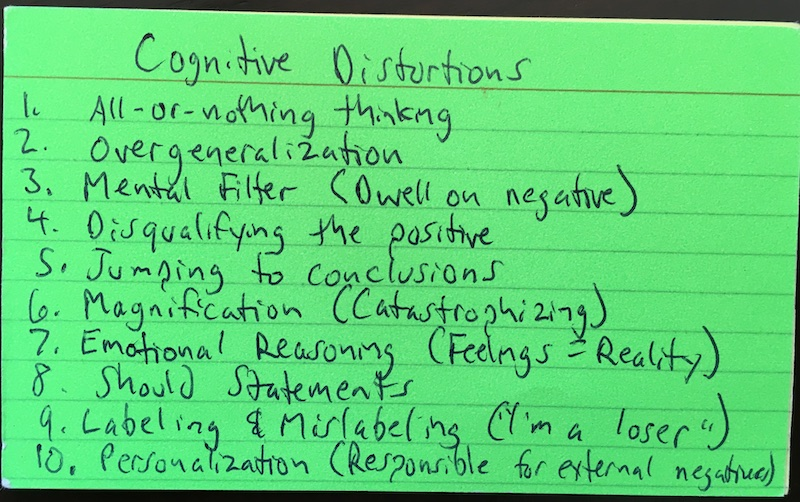 Cognitive Distortions
1. All-or-nothing thinking
2. Overgeneralization
3. Mental Filter (Dwell on negative)
4. Disqualifying the positive
5. Jumping to conclusions
6. Magnification (Catastrophizing)
7. Emotional Reasoning (Feelings = Reality)
8. Should Statements
9. Labeling & Mislabeling ("I'm a loser")
10. Personalization (Responsible for external negatives)